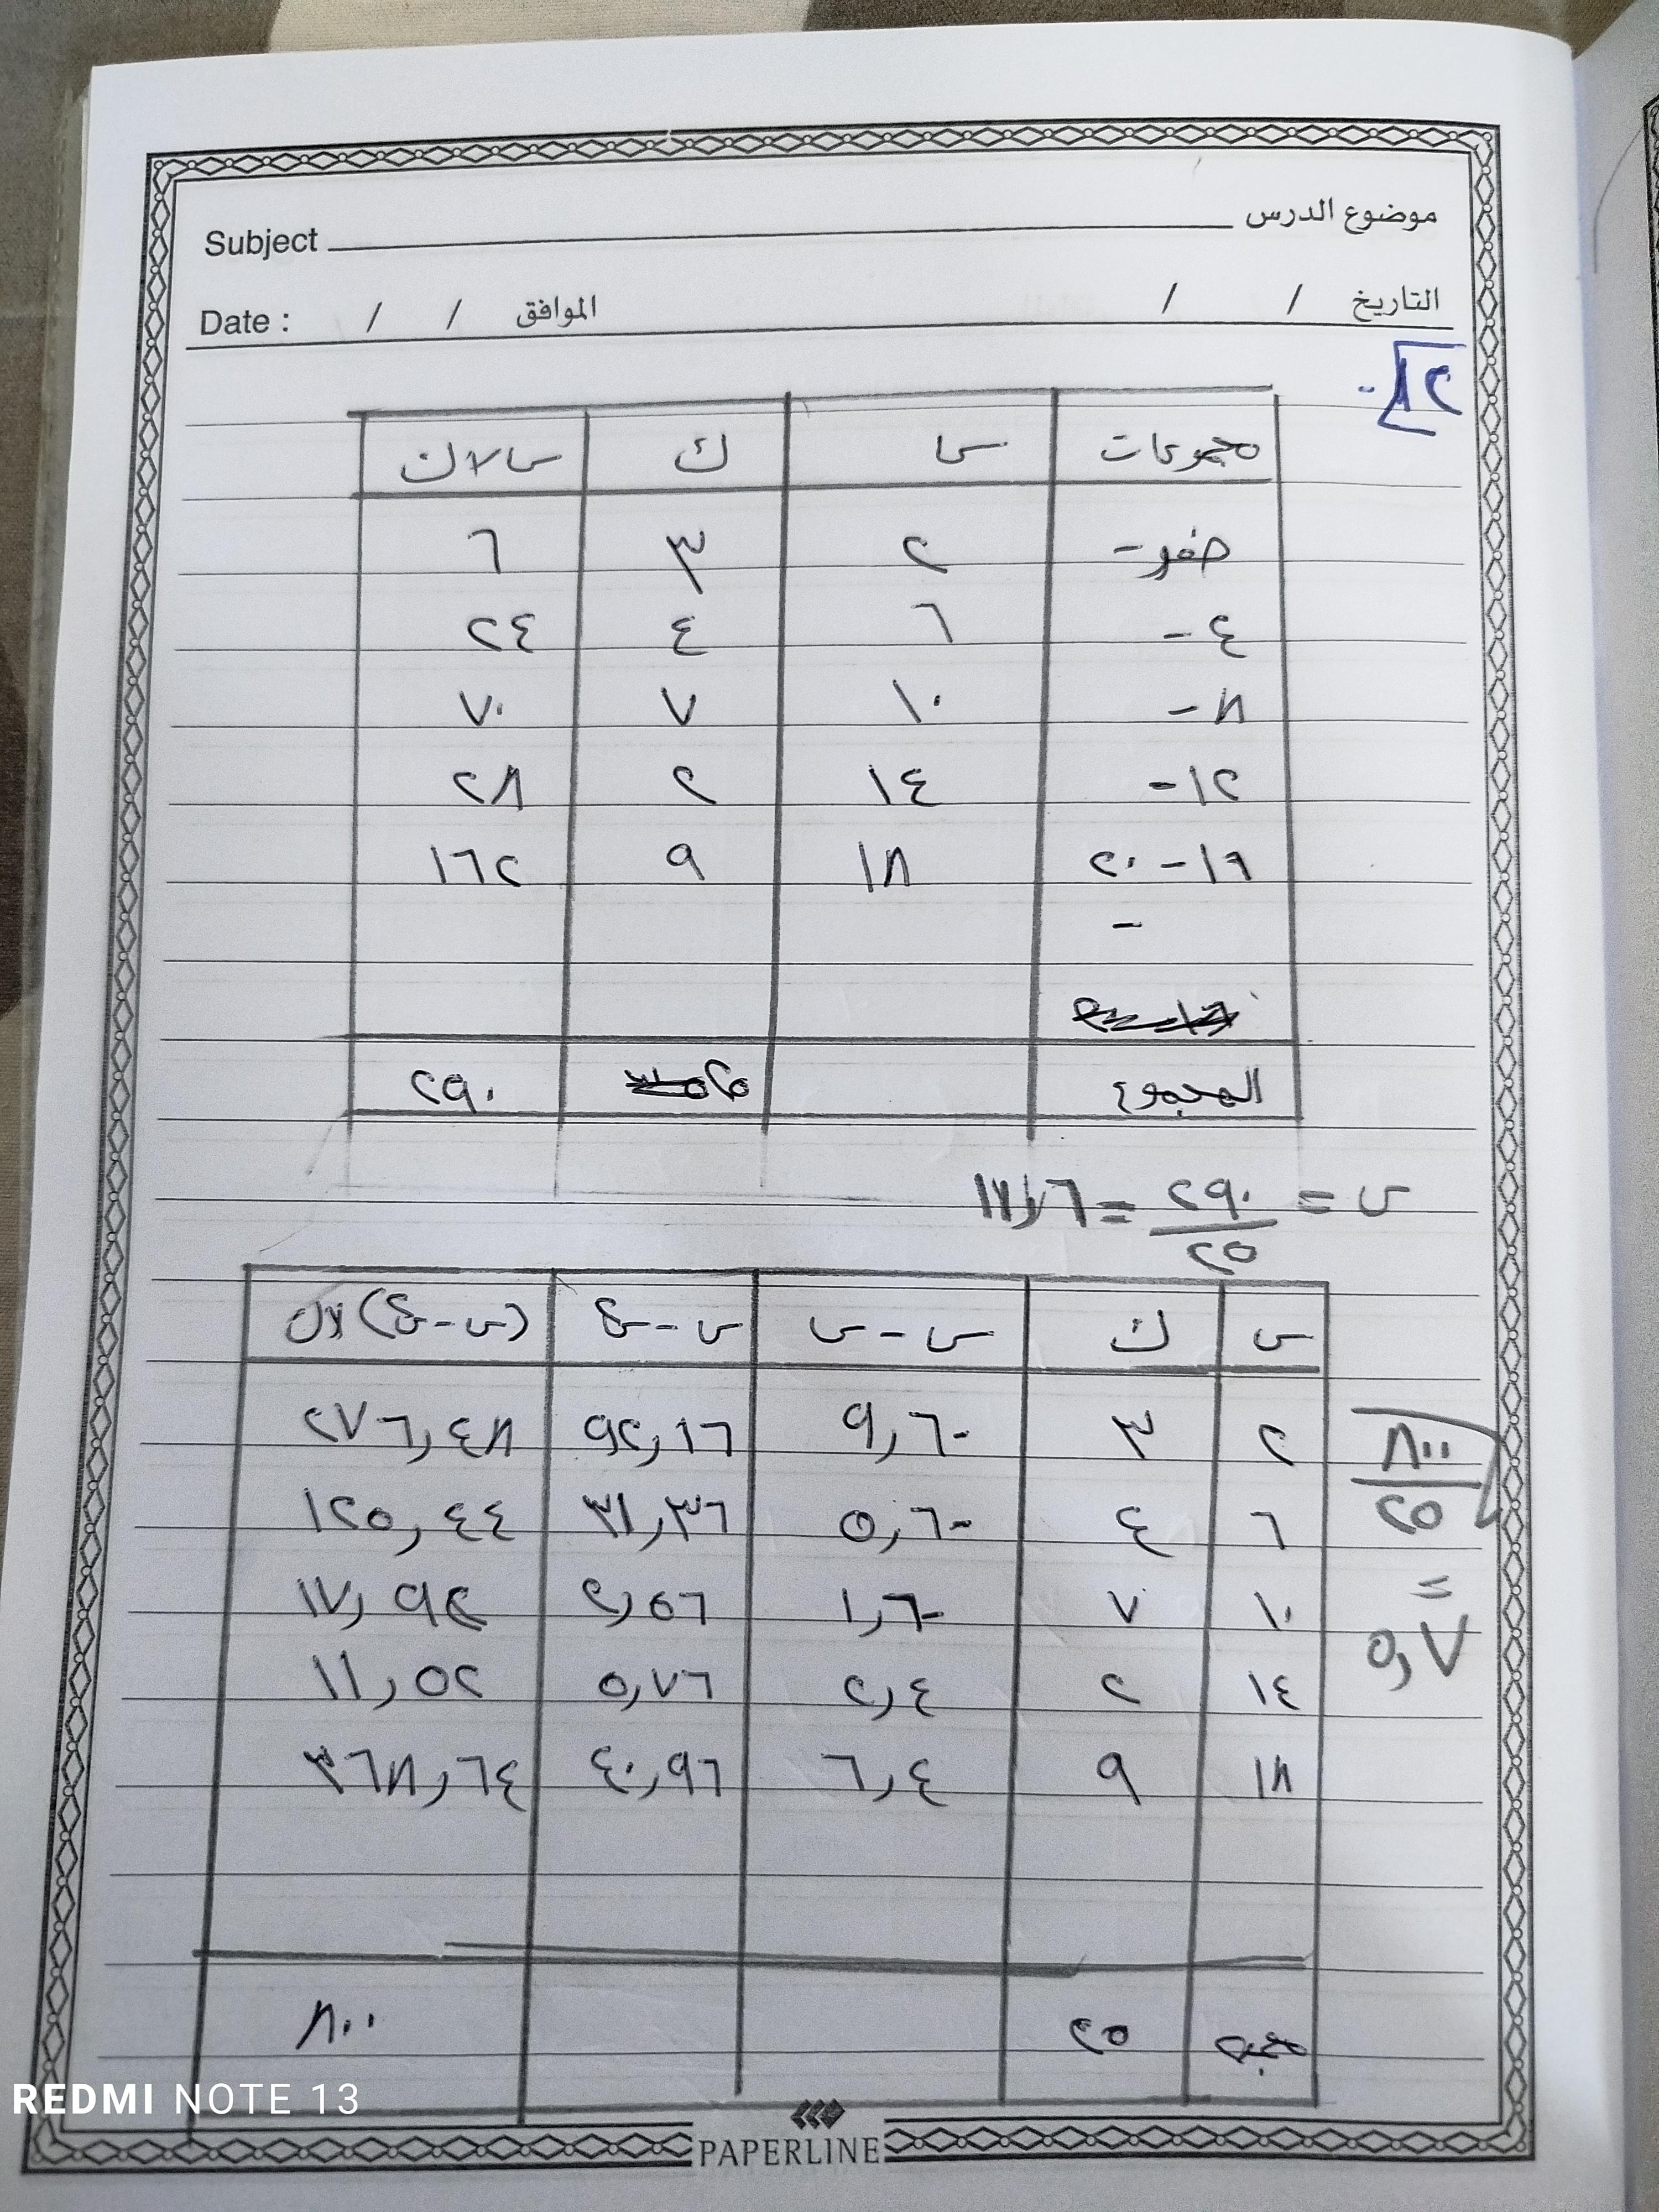 موضوع الدرس Subject
التاريخ / / الموافق / / Date :
١٢
مجموعات س ك س×ك
صفر- ٢ ٣ ٦
٤- ٦ ٤ ٢٤
٨- ١٠ ٧ ٧٠
١٢- ١٤ ٢ ٢٨
١٦-٢٠ ١٨ ٩ ١٦٢
-
المجموع ٢٥ ٢٩٠
س = ٢٩٠/٢٥ = ١١,٦
س ك س-س (س-س)٢ (س-س)٢×ك
٢ ٣ -٩,٦ ٩٢,١٦ ٢٧٦,٤٨
٦ ٤ -٥,٦ ٣١,٣٦ ١٢٥,٤٤
١٠ ٧ -١,٦ ٢,٥٦ ١٧,٩٢
١٤ ٢ ٢,٤ ٥,٧٦ ١١,٥٢
١٨ ٩ ٦,٤ ٤٠,٩٦ ٣٦٨,٦٤
مجـ ٢٥ ٨٠٠
√٨٠٠/٢٥
=
٥,٧
REDMI NOTE 13
PAPERLINE